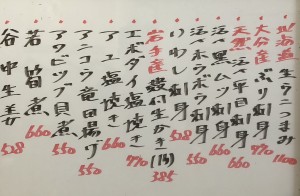 北海道生ウニつまみ 1600
大分産ぶり刺身 770
天然活〆平目刺身 660
活〆黒ムツ刺身 660
活〆ホウボウ刺身
いわし刺身 528
岩手産殻付生かき(1ケ) 385
エボダイ塩焼き 770
アユ塩焼き 660
アンコウ竜田揚げ 550
アワビツブ貝煮 550
若筍煮 660
谷中生姜 528